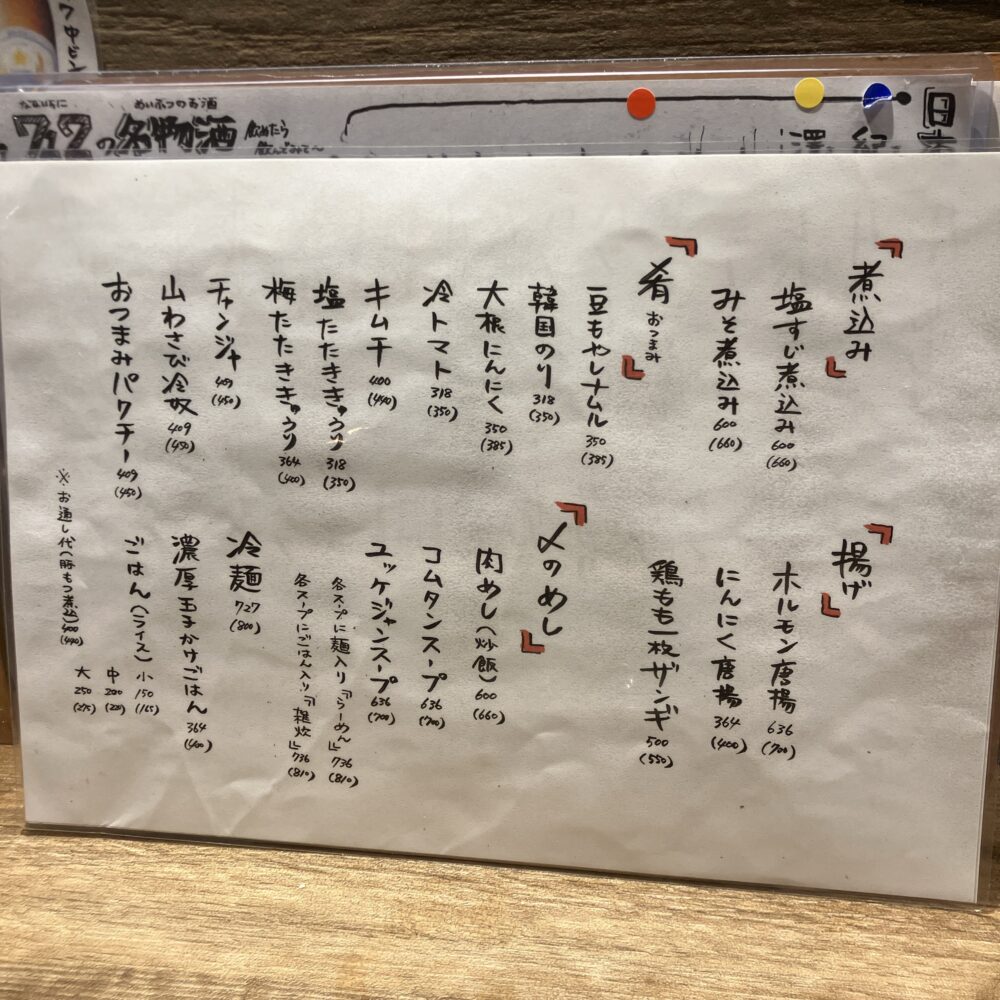 ク中ビン
なないちに
めいぶつのお酒
の名物酒
飲めたら
飲んでみて〜
紀
澤
「煮込み」
塩すじ煮込み 600 (660)
みそ煮込み 600 (660)
「肴 おつまみ」
豆もやしナムル 350 (385)
韓国のり 318 (350)
大根にんにく 350 (385)
冷トマト 318 (350)
キムチ 400 (440)
塩たたききゅうり 318 (350)
梅たたききゅうり 364 (400)
チャンジャ 409 (450)
山わさび冷奴 409 (450)
おつまみパクチー 409 (450)
「揚げ」
ホルモン唐揚 636 (700)
にんにく唐揚 364 (400)
鶏もも一枚ザンギ 500 (550)
「〆のめし」
肉めし(炒飯) 600 (660)
コムタンスープ 636 (700)
ユッケジャンスープ 636 (700)
各スープに麺入り『らーめん』 736 (810)
各スープにごはん入り『雑炊』 736 (810)
冷麺 727 (800)
濃厚玉子かけごはん 364 (400)
ごはん(ライス) 小 150 (165)
中 200 (220)
大 250 (275)
※お通し代(豚もつ煮込) 400 (440)